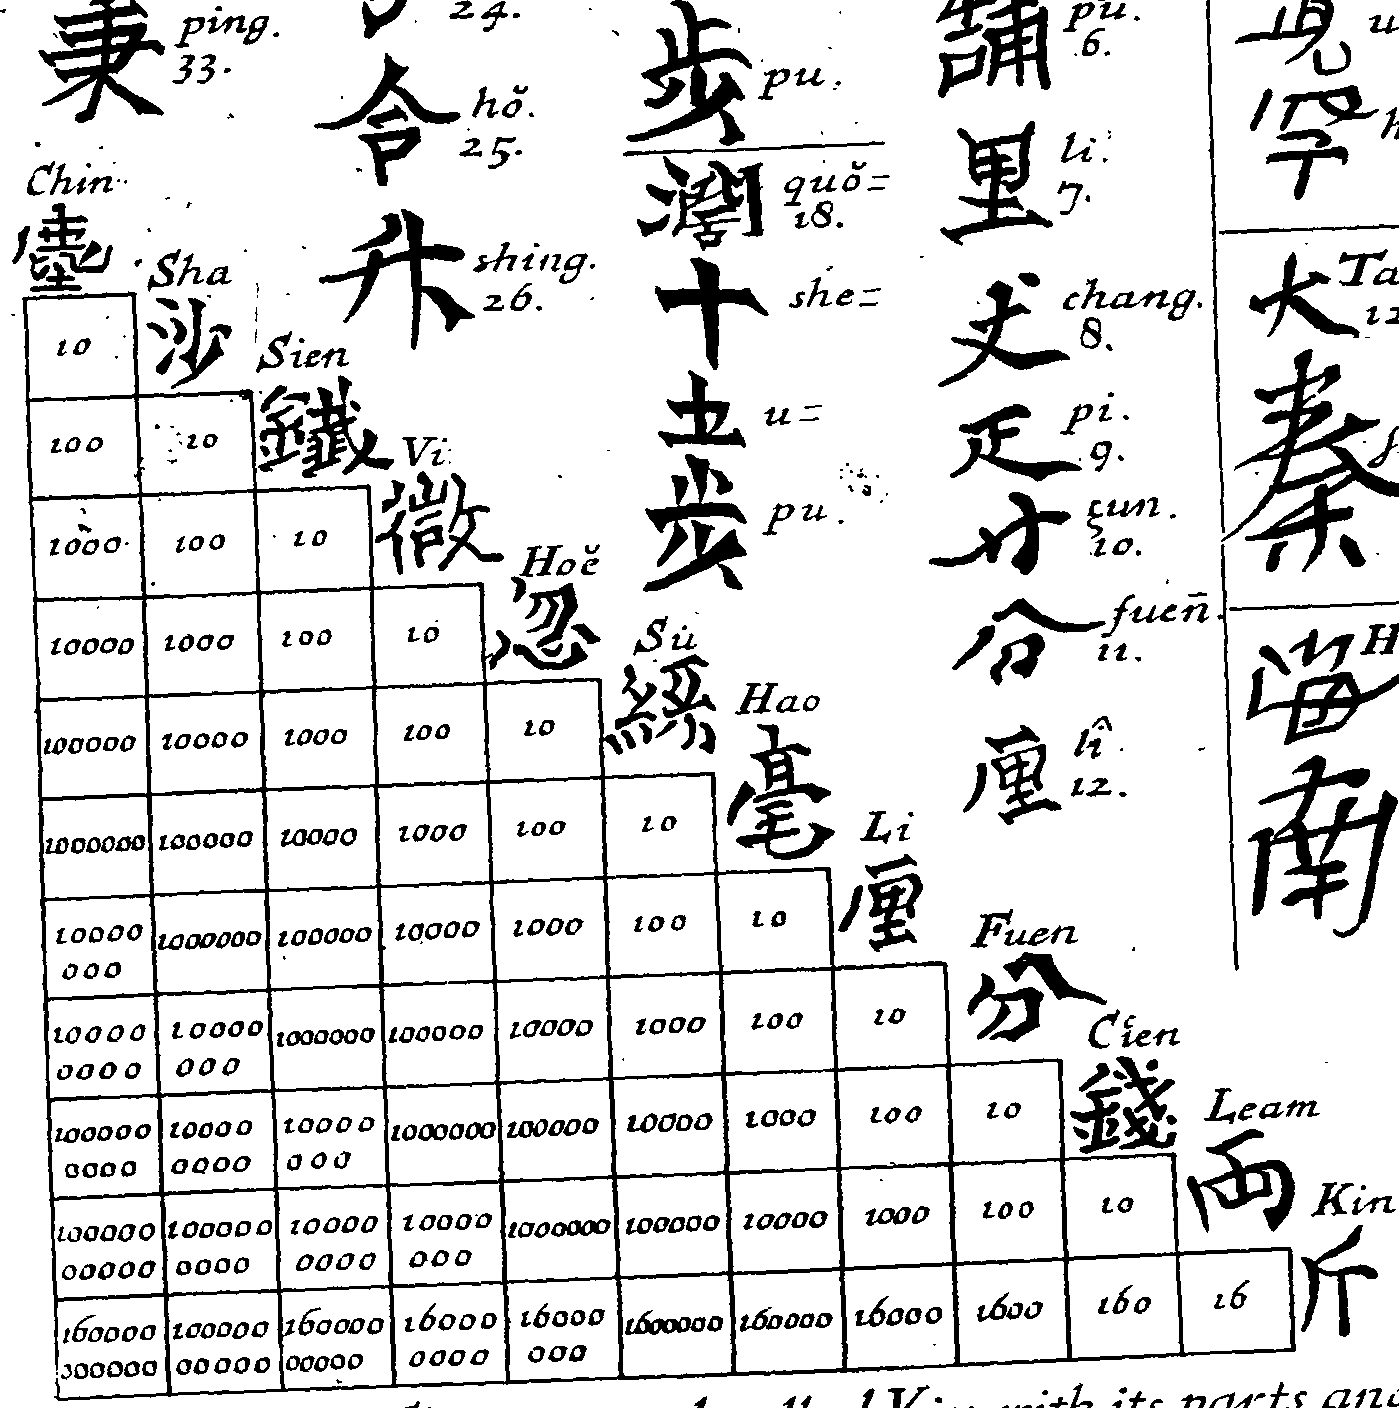 秉 ping.
33.
24.
合 hŏ.
25.
升 shing.
26.
步 pu.
濶 quŏ=
18.
十 she=
五 u=
步 pu.
舖 pu.
6.
里 li.
7.
丈 chang.
8.
疋 pi.
9.
寸 çun.
10.
分 fuen̄.
11.
厘 lî
12.
罕 h
大 Ta
12
秦
海 H
南
Chin
Sha
沙
Sien
鐵
Vi
微
Hoĕ
忽
Sù
絲
Hao
毫
Li
厘
Fuen
分
Cien
錢
Leam
両
Kin
斤
10
100 10
1000 100 10
10000 1000 100 10
100000 10000 1000 100 10
1000000 100000 10000 1000 100 10
10000 1000000 100000 10000 1000 100 10
000
10000 10000 1000000 100000 10000 1000 100 10
0000 000
100000 10000 10000 1000000 100000 10000 1000 100 10
0000 0000 000
100000 100000 10000 10000 1000000 100000 10000 1000 100 10
00000 0000 0000 000
160000 100000 160000 16000 16000 1600000 160000 16000 1600 160 16
000000 00000 00000 0000 000
with its parts and